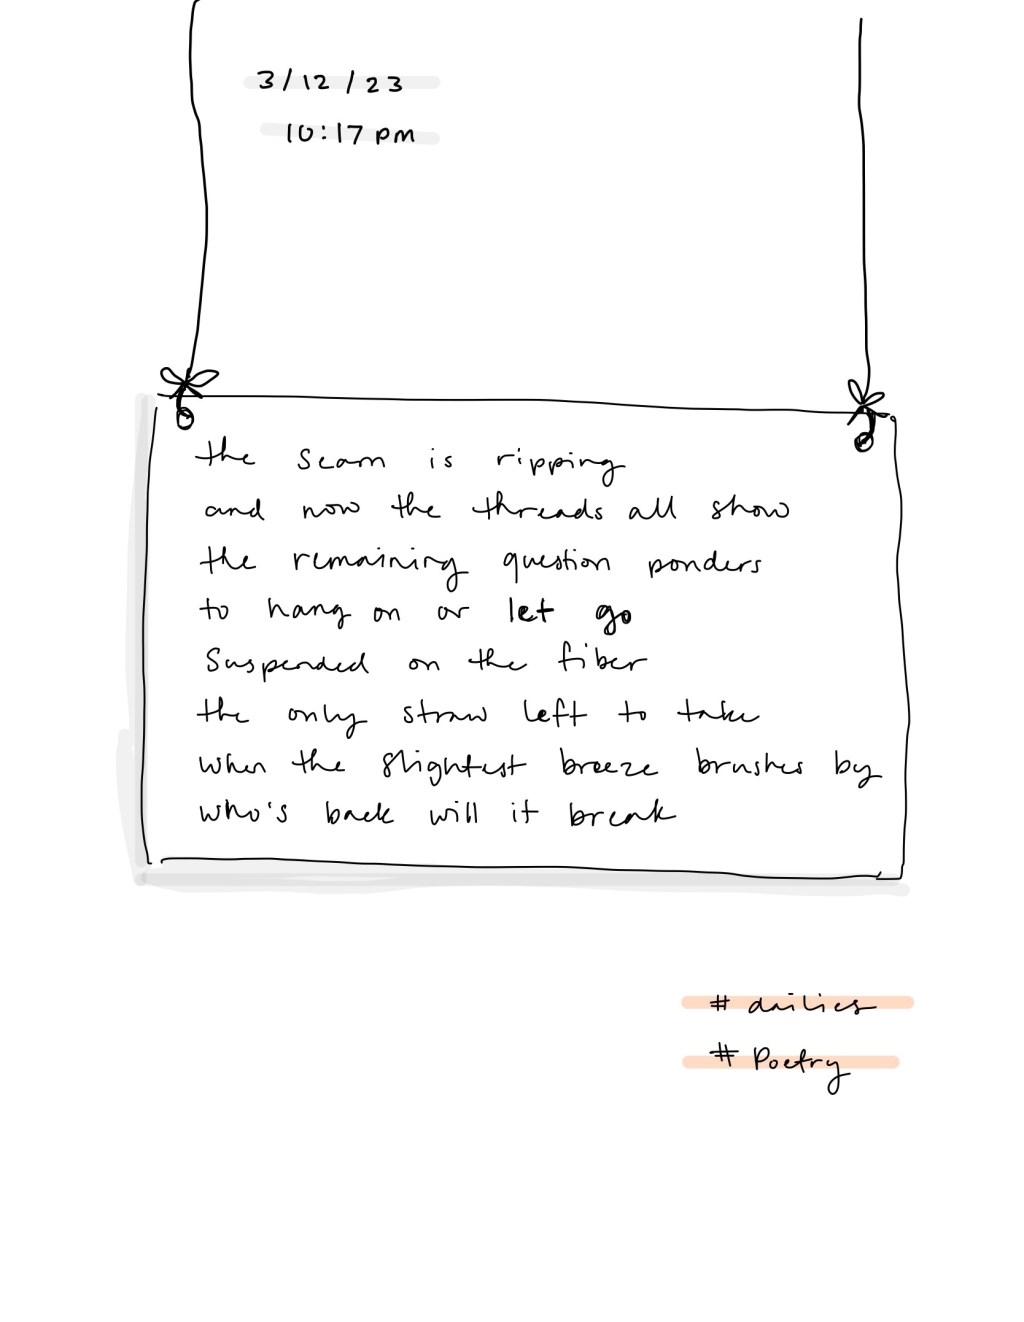 3/12/23
10:17 pm
the seam is ripping
and now the threads all show
the remaining question ponders
to hang on or let go
Suspended on the fiber
the only straw left to take
when the slightest breeze brushes by
who's back will it break
# dailies
# Poetry